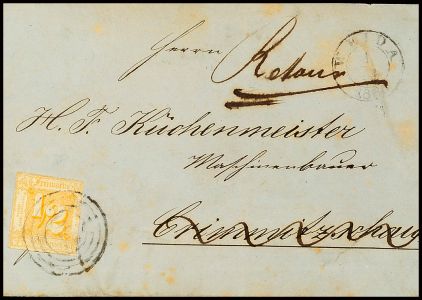 WEIDA
Herrn
Retour
H. F. Küchenmeister
Maschinenbauer
Crimmitzschau
1/2